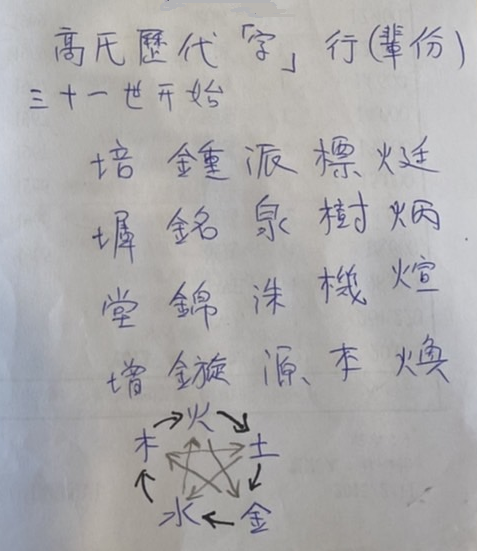 高氏歷代「字」行(輩份)
三十一世开始
培 鍾 派 標 烶
墀 銘 泉 樹 炳
堂 錦 洙 機 煊
增 鏇 源、本 煥
火
木 土
水 金